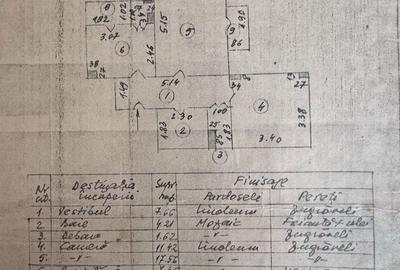 8
1.02
1.82
5.15
9
9
.90
86
3.07
6
2.46
38
27
1.49
5.14
1
34
8
27
4
2.30
100
1.83
2
25
85
1.83
3.38
3.40
3
Nr. crt. Destinatia încăperii Supr. mp. Finisaje
Pardoseli Pereti
1. Vestibul 7.66 Linoleum Zugrăveli
2 Baie 4.21 Mozaic
3 Debara 1.67 -"- Zugrăveli
4. Cameră 11.42 Linoleum Zugrăveli
5. -"- 17.56 -"- -"-